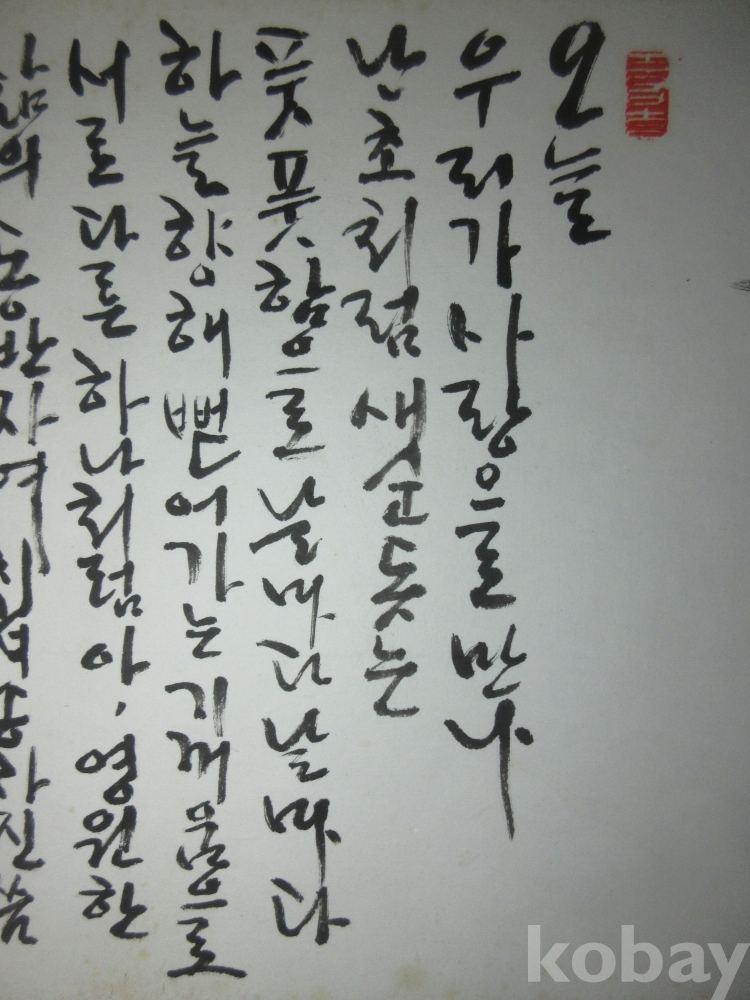 오늘
우리가 사랑으로 만나
난초처럼 돋는
풋풋함으로 날마다 날마다
하늘 향해 뻗어가는 기꺼움으로
서로 다른 하나처럼 아, 영원한
삶의 동반자여
kobay